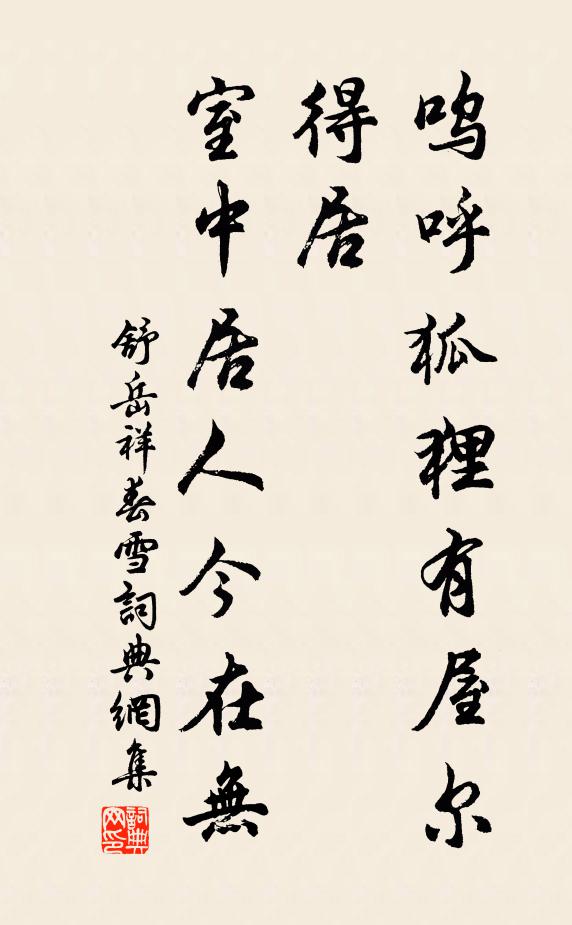 呜呼狐狸有屋尔
得居
室中居人今在無
舒岳祥春雪詞典網集
詞典网印